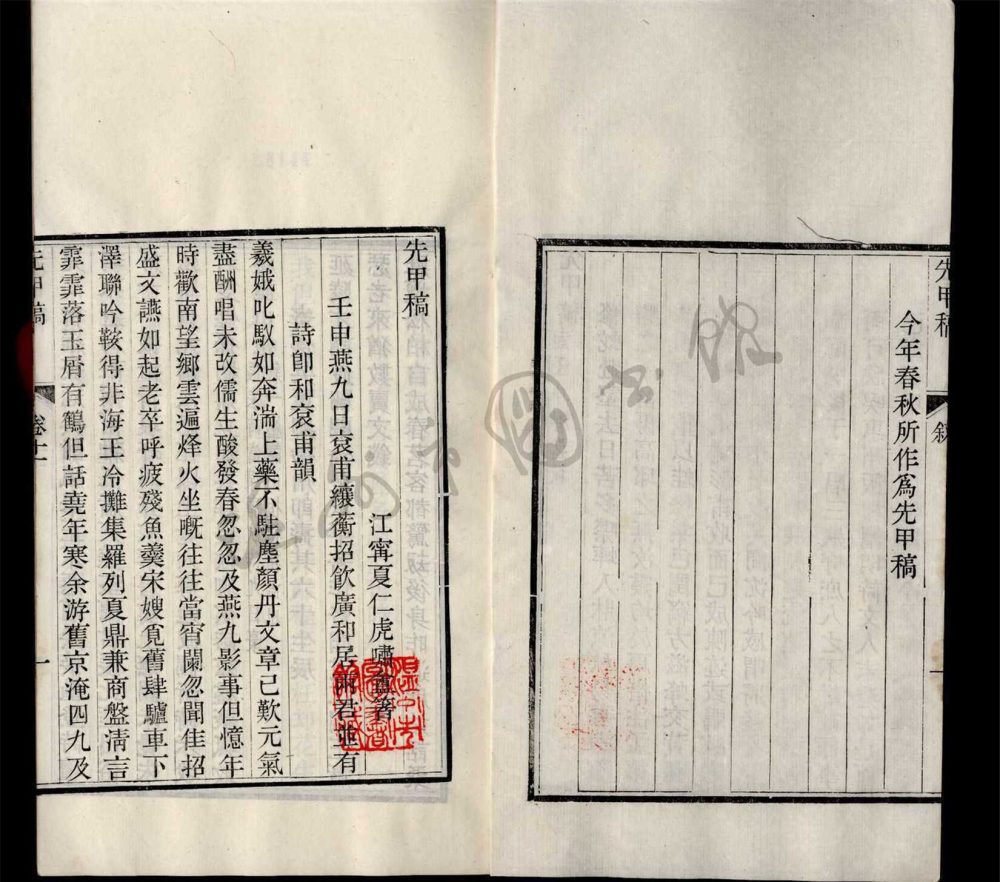 今年春秋所作爲先甲稿
先甲稿
敘
一
先甲稿
江甯夏仁虎嘯盦著
壬申燕九日裒甫纕蘅招飲廣和居兩君並有
詩卽和裒甫韻
羲娥叱馭如奔湍上藥不駐塵顏丹文章已歎元氣
盡酬唱未改儒生酸發春忽忽及燕九影事但憶年
時歡南望鄉雲遍烽火坐嘅往往當宵闌忽聞佳招
盛文讌如起老卒呼疲殘魚羹宋嫂覓舊肆驢車下
澤聯吟鞍得非海王冷攤集羅列夏鼎兼商盤淸言
霏霏落玉屑有鶴但話堯年寒余游舊京淹四九及
先甲稿
卷十一
一